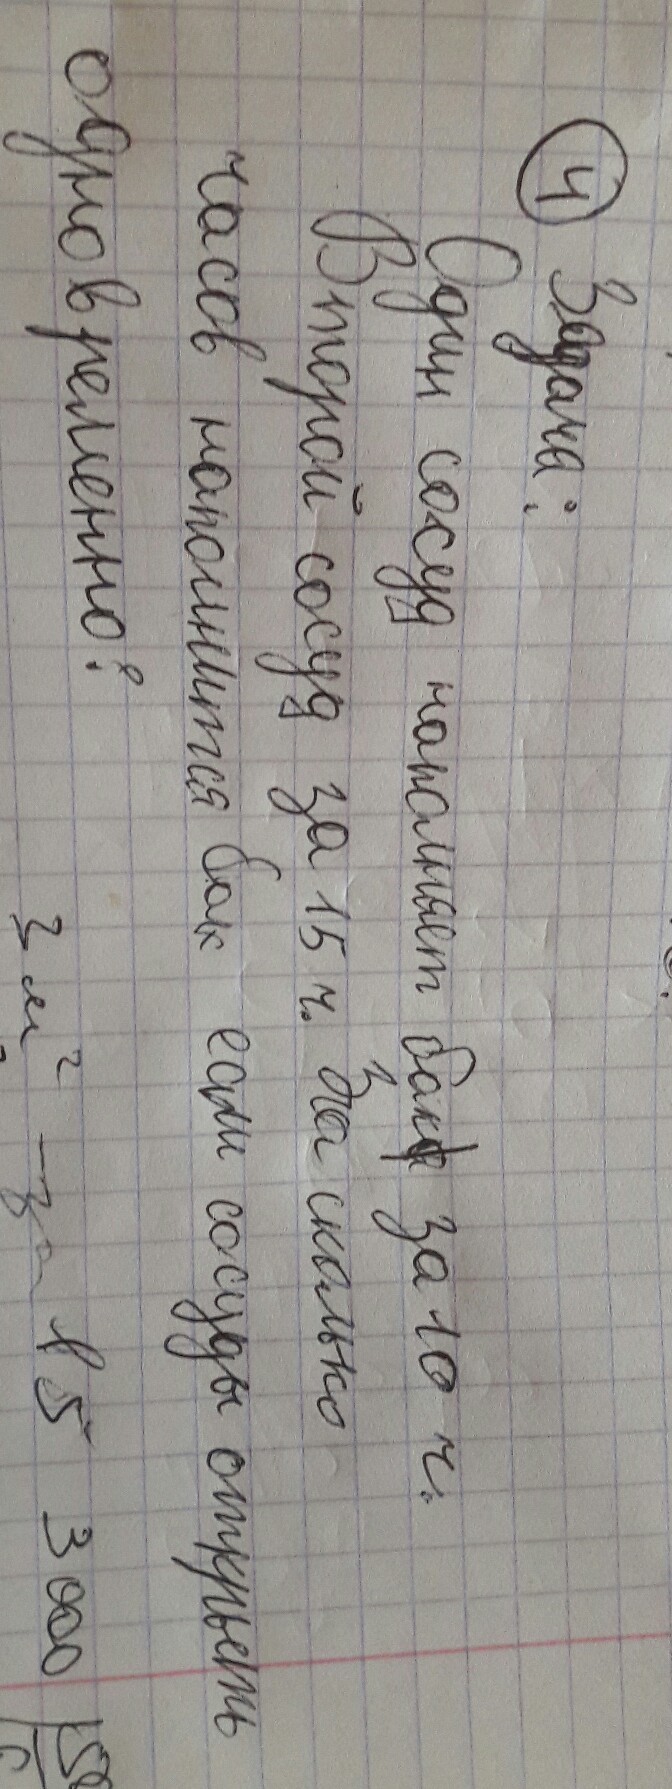 ④ Задача:
Один сосуд наполняет бак за 10 ч.
Второй сосуд за 15 ч. За сколько
часов наполнится бак если сосуды открыть
одновременно?
3 м² – за 15 3000